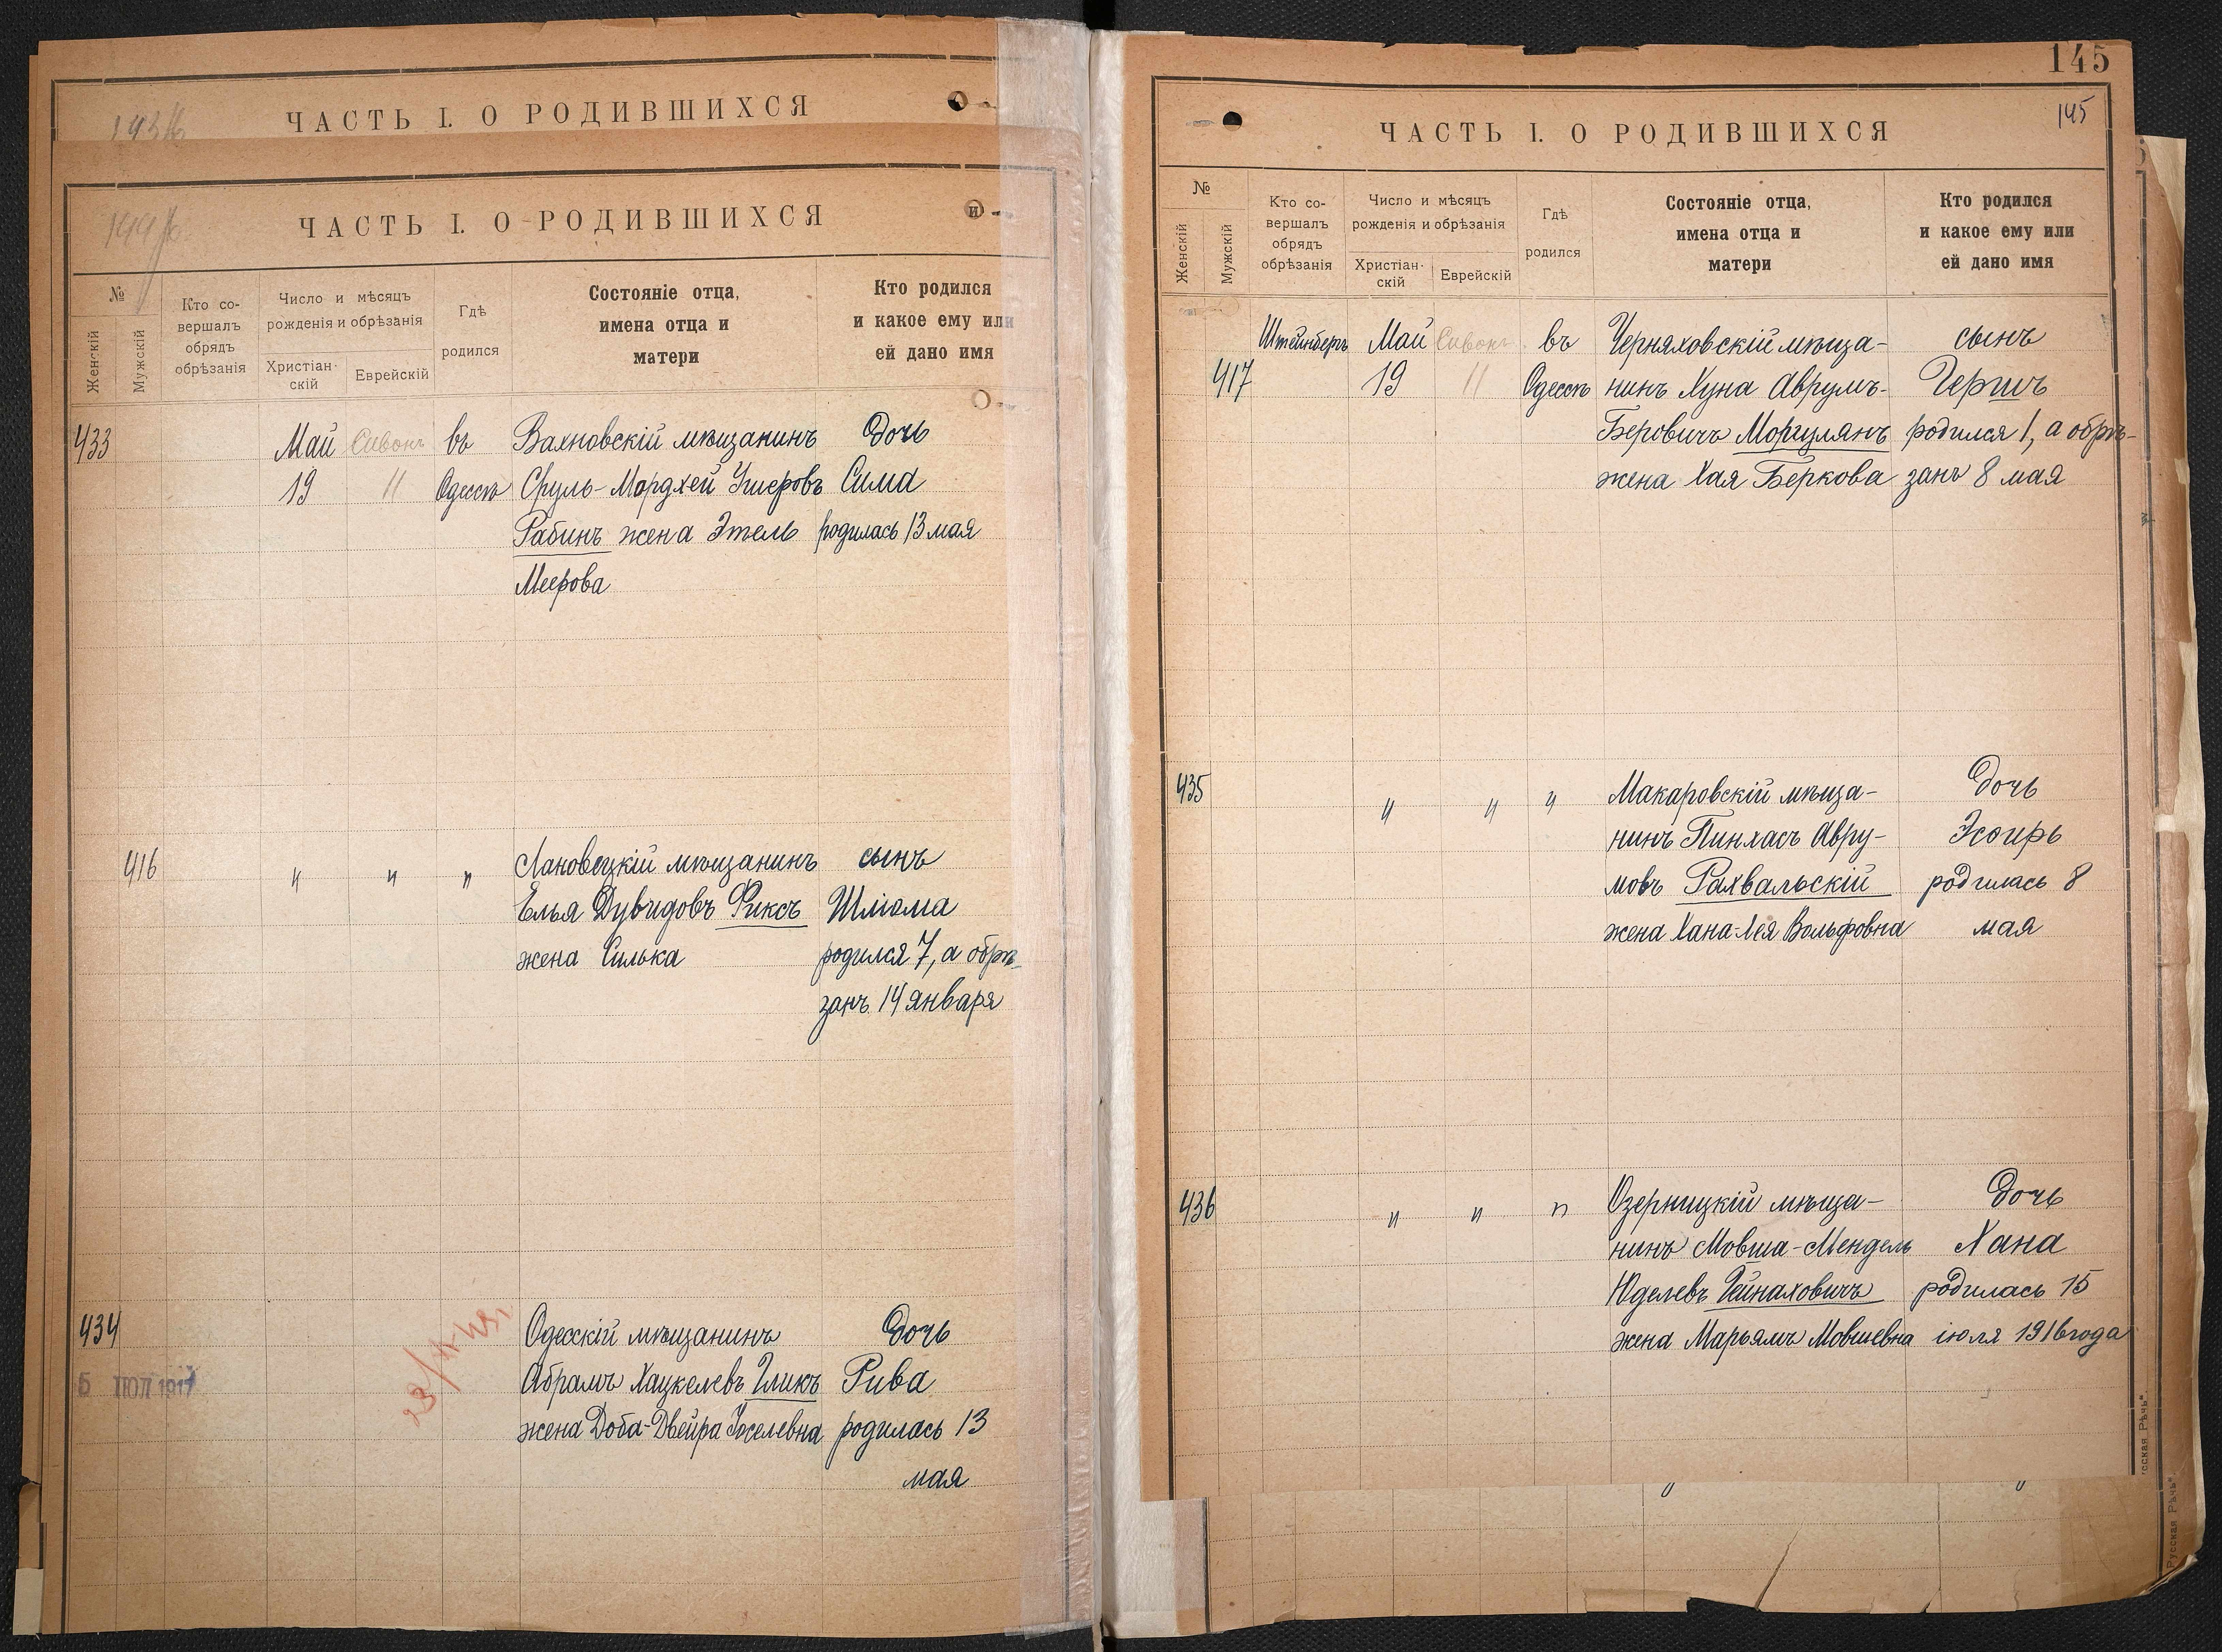 ЧАСТЬ I. О РОДИВШИХСЯ
ЧАСТЬ I. О РОДИВШИХСЯ
№
Женскій
Мужскій
Кто со-
вершалъ
обрядъ
обрѣзанія
Число и мѣсяцъ
рожденія и обрѣзанія
Христіан-
скій
Еврейскій
Гдѣ
родился
Состояніе отца,
имена отца и
матери
Кто родился
и какое ему или
ей дано имя
433 Май Сивонъ въ Вахновскій мѣщанинъ дочь
19 11 Одессѣ Сруль-Мордхей Ушеровъ Сима
Рабинъ жена Этель родилась 13 мая
Меерова
416 " " " Лановецкій мѣщанинъ сынъ
Елья Дувидовъ Фиксъ Шлиома
жена Силька родился 7, а обрѣ-
занъ 14 января
434 Одесскій мѣщанинъ дочь
5 ІЮЛ 1917 Абрамъ Хацкелевъ Гликъ Рива
жена Доба-Двейра Іоселевна родилась 13
мая
145
145
ЧАСТЬ I. О РОДИВШИХСЯ
№
Женскій
Мужскій
Кто со-
вершалъ
обрядъ
обрѣзанія
Число и мѣсяцъ
рожденія и обрѣзанія
Христіан-
скій
Еврейскій
Гдѣ
родился
Состояніе отца,
имена отца и
матери
Кто родился
и какое ему или
ей дано имя
Штейнбергъ Май Сивонъ въ Черняховскій мѣща- сынъ
417 19 11 Одессѣ нинъ Хуна Аврумъ- Гершъ
Беровичъ Моргулянъ родился 1, а обрѣ-
жена Хая Беркова занъ 8 мая
435 " " " Макаровскій мѣща- дочь
нинъ Пинхасъ Авру- Эсѳирь
мовъ Рахвальскій родилась 8
жена Хана-Лея Вольфовна мая
436 " " " Озерницкій мѣща- дочь
нинъ Мовша-Мендель Хана
Юделевъ Гейнаховичъ родилась 15
жена Марьямъ Мовшевна іюля 1916 года
" "
Русская Рѣчь".